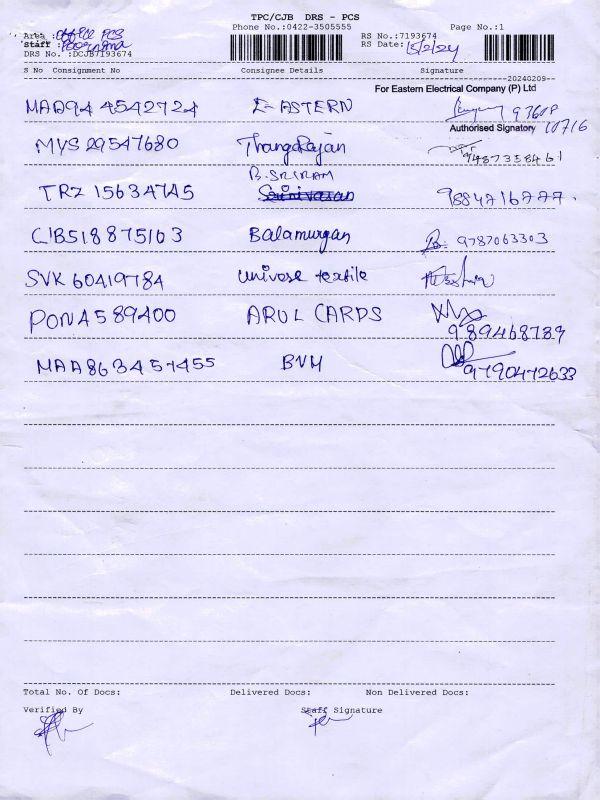 TPC/CJB DRS - PCS
Phone No.:0422-3505555
Page No.:1
Area : Office PCS
Staff :
DRS No. :DCJB7193674
RS No.:7193674
RS Date: 15/2/24
S No Consignment No Consignee Details Signature
20240209--
For Eastern Electrical Company (P) Ltd
MAA94 4542724 EASTERN
Authorised Signatory
MYS 29547680 ThangaRajan 9487358461
B. SRIRAM
TRZ 15634745 Srinivasan 9884716777.
CJB518875103 Balamurgan 9787063303
SVK 60419784 Universe textile
PON A589400 ARUL CARDS
989468789
MAA863457455 BVM
9790472633
Total No. Of Docs: Delivered Docs: Non Delivered Docs:
Verified By Staff Signature